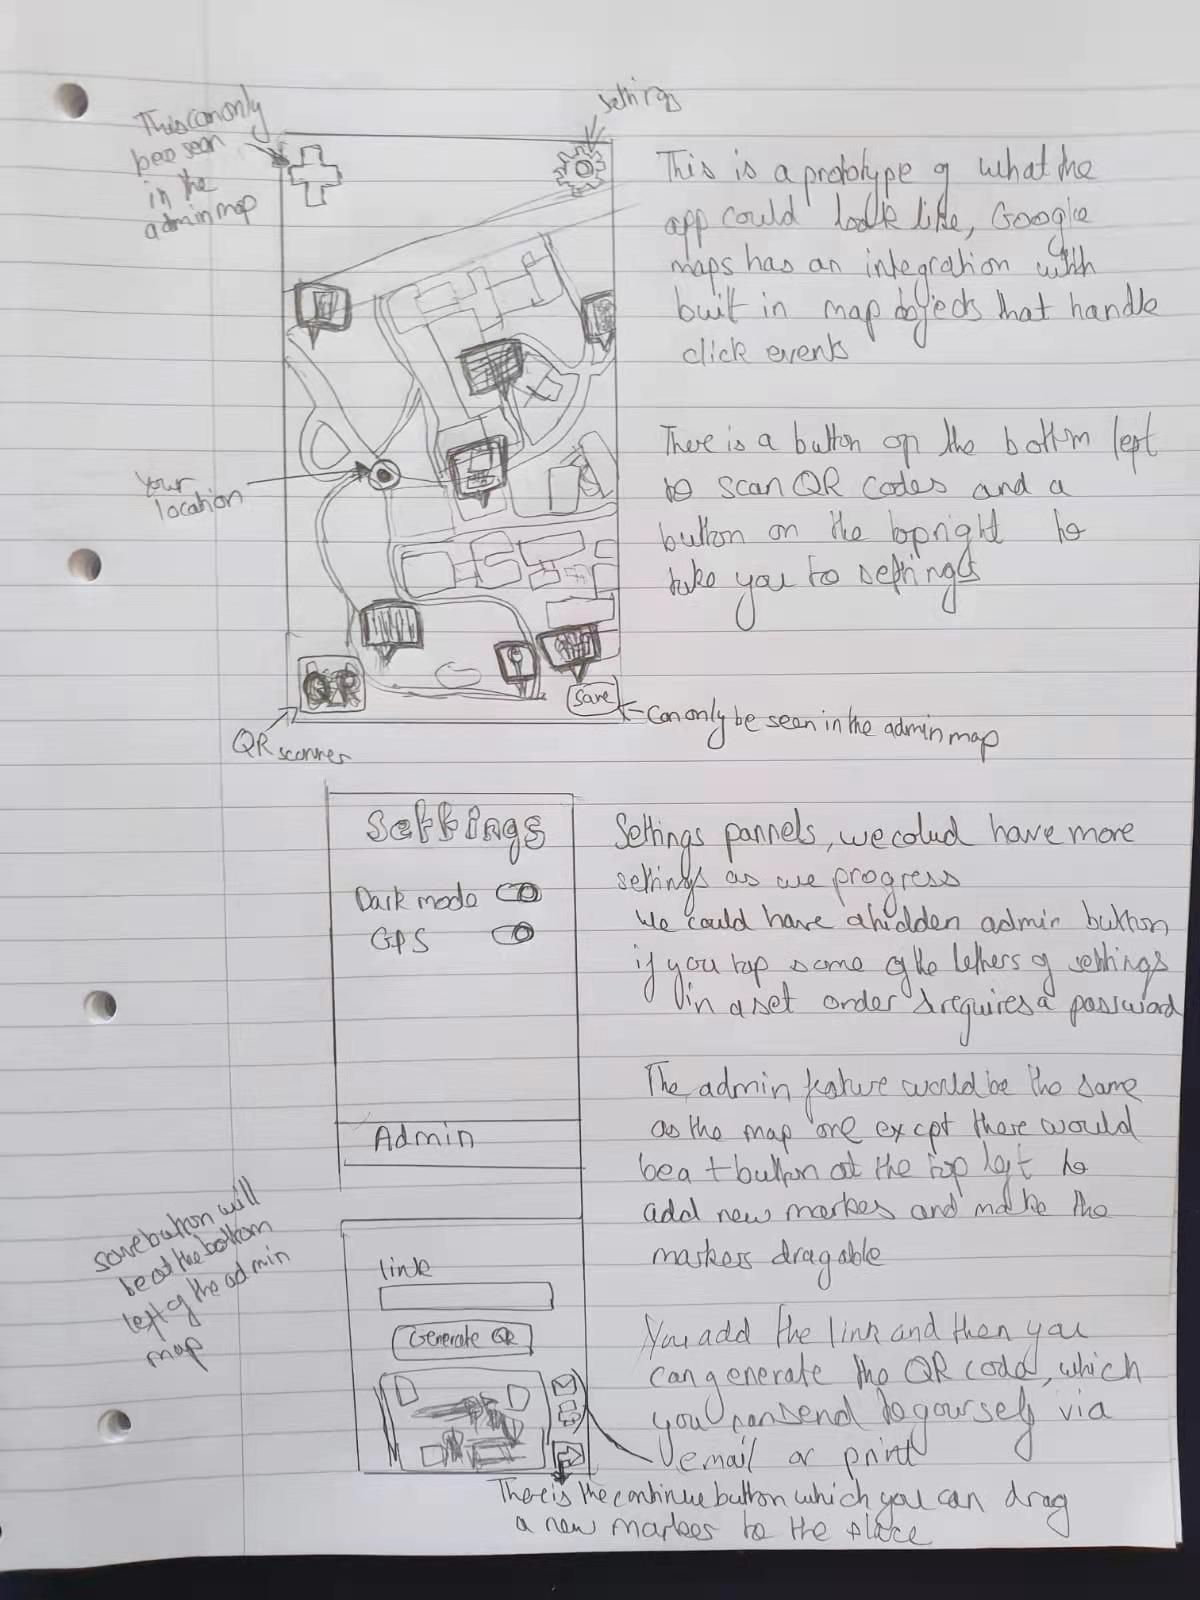 settings
This can only
bee seen
in the
admin map
This is a prototype of what the
app could look like, Google
maps has an integration with
built in map objects that handle
click events
There is a button on the bottom left
to scan QR codes and a
button on the top right to
take you to settings
Your
location
QR
save
Can only be seen in the admin map
QR scanner
Settings
Dark mode
GPS
Admin
Settings pannels, we colud have more
settings as we progress
We could have a hidden admin button
if you tap some of the letters of settings
in a set order & requires a password
The admin feature would be the same
as the map one except there would
be a + button at the top left to
add new markes and make the
markers dragable
save button will
be at the bottom
left of the admin
map
link
Generate QR
You add the link and then you
can generate the QR code, which
you can send to yourself via
email or print
There is the continue button which you can drag
a new marker to the place